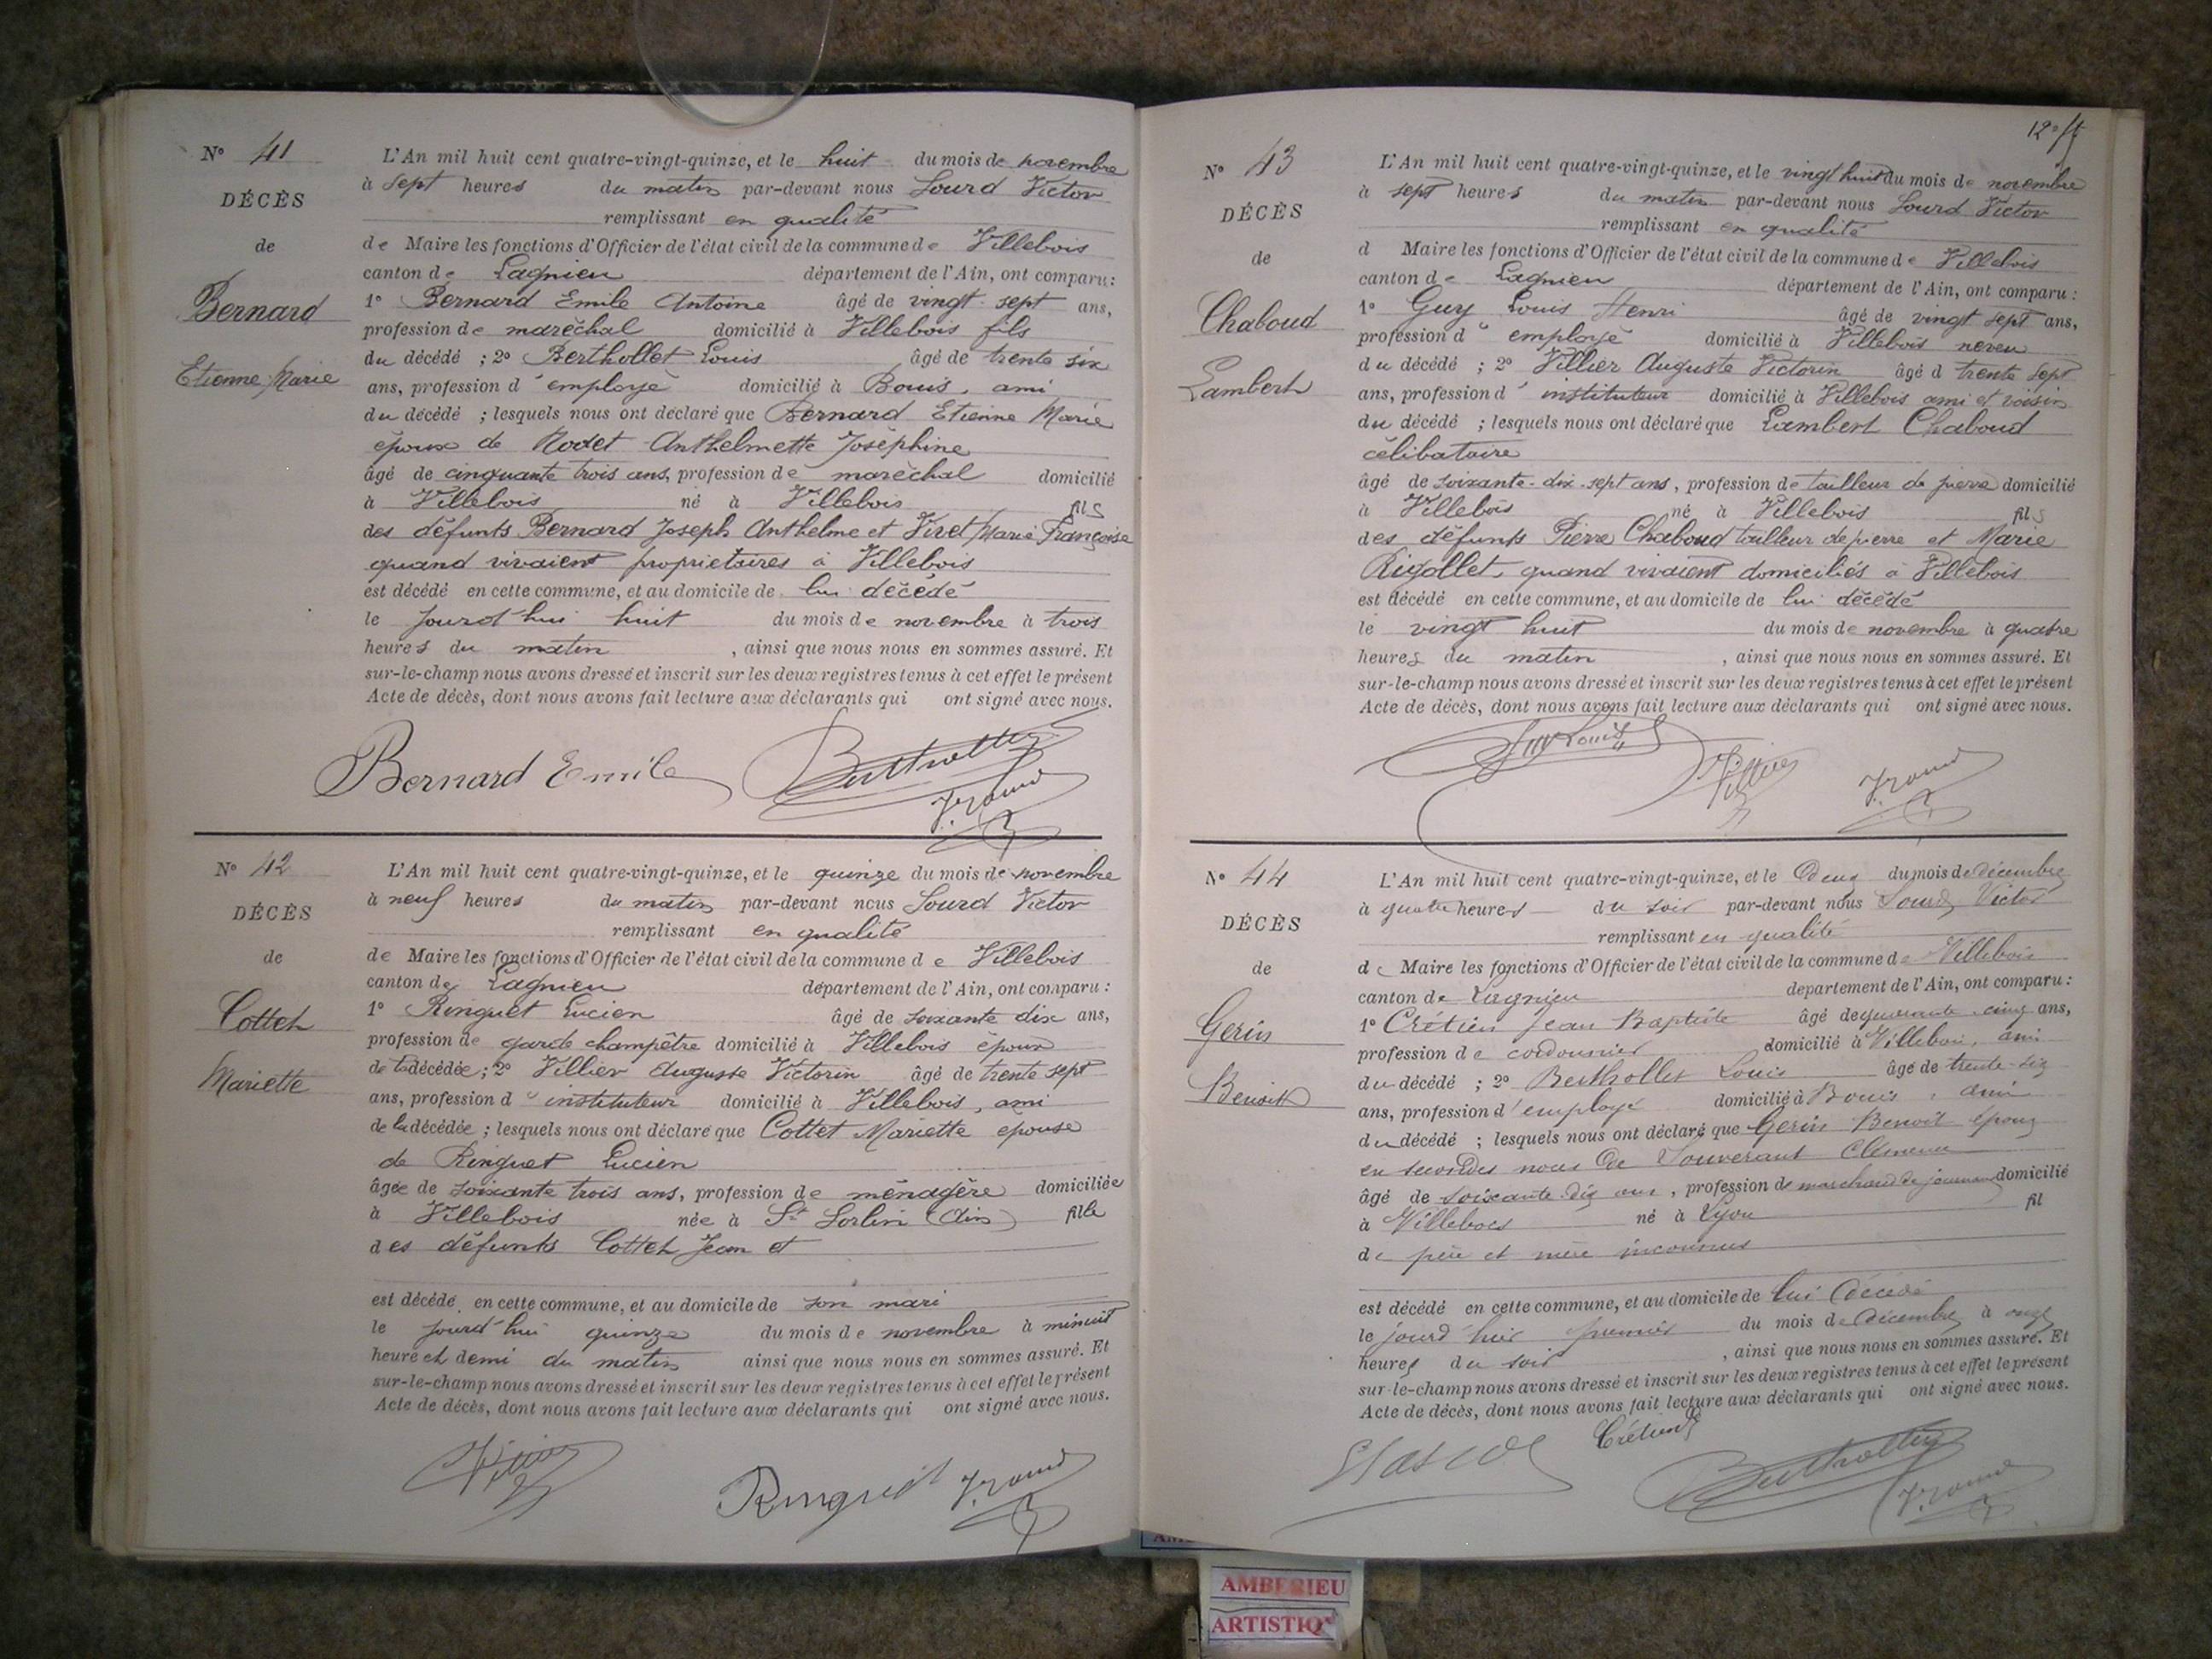 N° 41
DÉCÈS
de
Bernard
Etienne Marie
L'An mil huit cent quatre-vingt-quinze, et le huit du mois de novembre
à sept heures du matin par-devant nous Lourd Victor
remplissant en qualité
de Maire les fonctions d'Officier de l'état civil de la commune de Villebois
canton de Lagnieu département de l'Ain, ont comparu:
1° Bernard Emile Antoine âgé de vingt-sept ans,
profession de maréchal domicilié à Villebois fils
du décédé ; 2° Berthollet Louis âgé de trente six
ans, profession d'employé domicilié à Bouis, ami
du décédé ; lesquels nous ont déclaré que Bernard Etienne Marie
époux de Rodet Anthelmette Joséphine
âgé de cinquante trois ans, profession de maréchal domicilié
à Villebois né à Villebois fils
des défunts Bernard Joseph Anthelme et Viret Marie Françoise
quand vivaient propriétaires à Villebois
est décédé en cette commune, et au domicile de lui décédé
le jourd'hui huit du mois de novembre à trois
heures du matin, ainsi que nous nous en sommes assuré. Et
sur-le-champ nous avons dressé et inscrit sur les deux registres tenus à cet effet le présent
Acte de décès, dont nous avons fait lecture aux déclarants qui ont signé avec nous.
Bernard Emile Berthollet
N° 42
DÉCÈS
de
Cottet
Mariette
L'An mil huit cent quatre-vingt-quinze, et le quinze du mois de novembre
à neuf heures du matin par-devant nous Lourd Victor
remplissant en qualité
de Maire les fonctions d'Officier de l'état civil de la commune de Villebois
canton de Lagnieu département de l'Ain, ont comparu :
1° Ringuet Lucien âgé de soixante dix ans,
profession de garde champêtre domicilié à Villebois époux
de la décédée ; 2° Villier Auguste Victorin âgé de trente sept
ans, profession d'instituteur domicilié à Villebois, ami
de la décédée ; lesquels nous ont déclaré que Cottet Mariette épouse
de Ringuet Lucien
âgée de soixante trois ans, profession de ménagère domiciliée
à Villebois née à St Sorlin (Ain) fille
des défunts Cottet Jean et
est décédé en cette commune, et au domicile de son mari
le jourd'hui quinze du mois de novembre à minuit
heure et demi du matin ainsi que nous nous en sommes assuré. Et
sur-le-champ nous avons dressé et inscrit sur les deux registres tenus à cet effet le présent
Acte de décès, dont nous avons fait lecture aux déclarants qui ont signé avec nous.
Villier Ringuet
N° 43
DÉCÈS
de
Chaboud
Lambert
L'An mil huit cent quatre-vingt-quinze, et le vingt huit du mois de novembre
à sept heures du matin par-devant nous Lourd Victor
remplissant en qualité
d Maire les fonctions d'Officier de l'état civil de la commune de Villebois
canton de Lagnieu département de l'Ain, ont comparu :
1° Guy Louis Henri âgé de vingt sept ans,
profession d'employé domicilié à Villebois neveu
du décédé ; 2° Villier Auguste Victorin âgé d trente sept
ans, profession d'instituteur domicilié à Villebois ami et voisin
du décédé ; lesquels nous ont déclaré que Lambert Chaboud
célibataire
âgé de soixante-dix-sept ans, profession de tailleur de pierre domicilié
à Villebois né à Villebois fils
des défunts Pierre Chaboud tailleur de pierre et Marie
Rigollet, quand vivaient domiciliés à Villebois
est décédé en cette commune, et au domicile de lui décédé
le vingt huit du mois de novembre à quatre
heures du matin, ainsi que nous nous en sommes assuré. Et
sur-le-champ nous avons dressé et inscrit sur les deux registres tenus à cet effet le présent
Acte de décès, dont nous avons fait lecture aux déclarants qui ont signé avec nous.
Guy Louis Villier
N° 44
DÉCÈS
de
Gerin
Benoit
L'An mil huit cent quatre-vingt-quinze, et le deux du mois de décembre
à quatre heures du soir par-devant nous Lourd Victor
remplissant en qualité
de Maire les fonctions d'Officier de l'état civil de la commune de Villebois
canton de Lagnieu département de l'Ain, ont comparu :
1° Crétien Jean Baptiste âgé de quarante-cinq ans,
profession de cordonnier domicilié à Villebois, ami
du décédé ; 2° Berthollet Louis âgé de trente-six
ans, profession d'employé domicilié à Bouis, ami
du décédé ; lesquels nous ont déclaré que Gerin Benoit époux
en secondes noces de Souverant Clémence
âgé de soixante dix ans, profession de marchand de journaux domicilié
à Villebois né à Lyon fil
de père et mère inconnus
est décédé en cette commune, et au domicile de lui décédé
le jourd'hui premier du mois de décembre à onze
heures du soir, ainsi que nous nous en sommes assuré. Et
sur-le-champ nous avons dressé et inscrit sur les deux registres tenus à cet effet le présent
Acte de décès, dont nous avons fait lecture aux déclarants qui ont signé avec nous.
Crétien Berthollet
AMBERIEU
ARTISTIQ